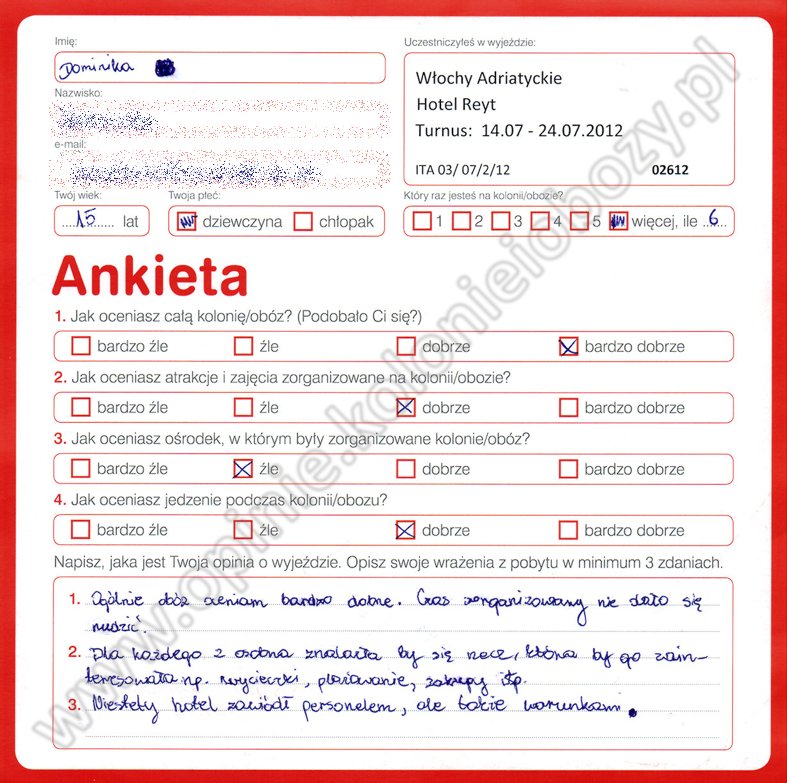 Imię:
Dominika
Uczestniczyłeś w wyjeździe:
Włochy Adriatyckie
Hotel Reyt
Turnus: 14.07 - 24.07.2012
ITA 03/ 07/2/12 02612
Nazwisko:
e-mail:
Twój wiek:
15 lat
Twoja płeć:
dziewczyna chłopak
Który raz jesteś na kolonii/obozie?
1 2 3 4 5 więcej, ile 6
Ankieta
1. Jak oceniasz całą kolonię/obóz? (Podobało Ci się?)
bardzo źle źle dobrze bardzo dobrze
2. Jak oceniasz atrakcje i zajęcia zorganizowane na kolonii/obozie?
bardzo źle źle dobrze bardzo dobrze
3. Jak oceniasz ośrodek, w którym były zorganizowane kolonie/obóz?
bardzo źle źle dobrze bardzo dobrze
4. Jak oceniasz jedzenie podczas kolonii/obozu?
bardzo źle źle dobrze bardzo dobrze
Napisz, jaka jest Twoja opinia o wyjeździe. Opisz swoje wrażenia z pobytu w minimum 3 zdaniach.
1. Ogólnie obóz oceniam bardzo dobrze. Czas zorganizowany nie dało się
nudzić.
2. Dla każdego z osobna znalazła by się rzecz, która by go zain-
teresowała np. wycieczki, plażowanie, zakupy itp.
3. Niestety hotel zawiódł personelem, ale także warunkami.
www.opinie.kolonieiobozy.pl